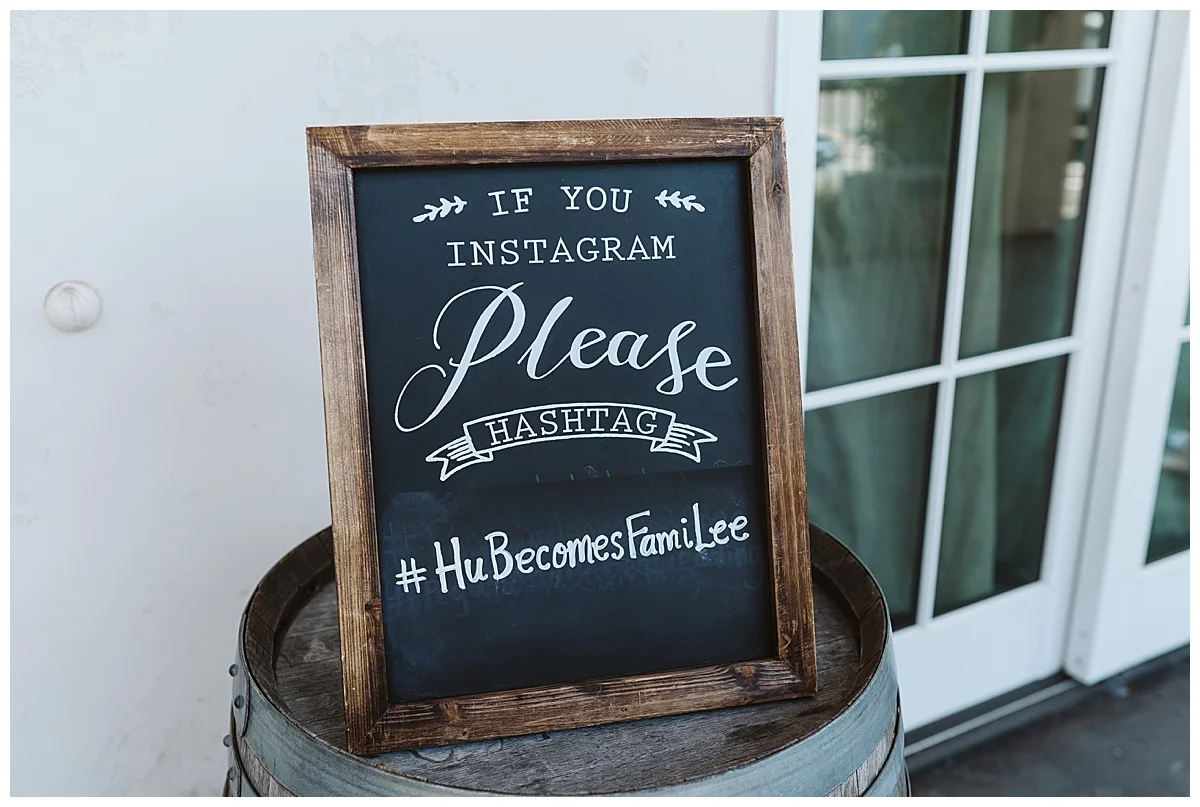 IF YOU
INSTAGRAM
Please
HASHTAG
#HuBecomesFamiLee